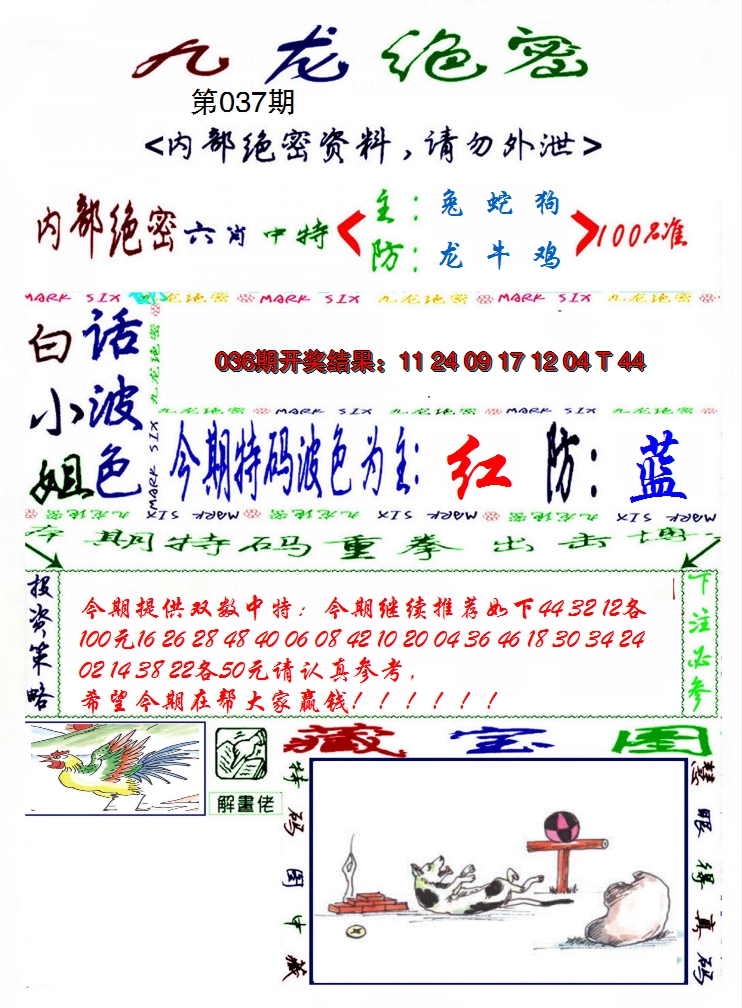 九龙绝密
第037期
<内部绝密资料，请勿外泄>
内部绝密六肖中特
主：兔 蛇 狗
防：龙 牛 鸡
100%准
MARK SIX 九龙绝密 MARK SIX 九龙绝密 MARK SIX 九龙绝密
白小姐
话波色
九龙绝密
MARK SIX
036期开奖结果：11 24 09 17 12 04 T 44
九龙绝密 MARK SIX 九龙绝密 MARK SIX 九龙绝密
今期特码波色为主：红 防：蓝
MARK SIX 九龙绝密 MARK SIX 九龙绝密 MARK SIX 九龙绝密
本期特码重拳出击博
投资策略
今期提供双数中特；今期继续推荐如下44 32 12各
100元16 26 28 48 40 06 08 42 10 20 04 36 46 18 30 34 24
02 14 38 22各50元请认真参考，
希望今期在帮大家赢钱！！！！！！
下注必参
解畫佬
藏宝图
特码图中藏
慧眼得真码